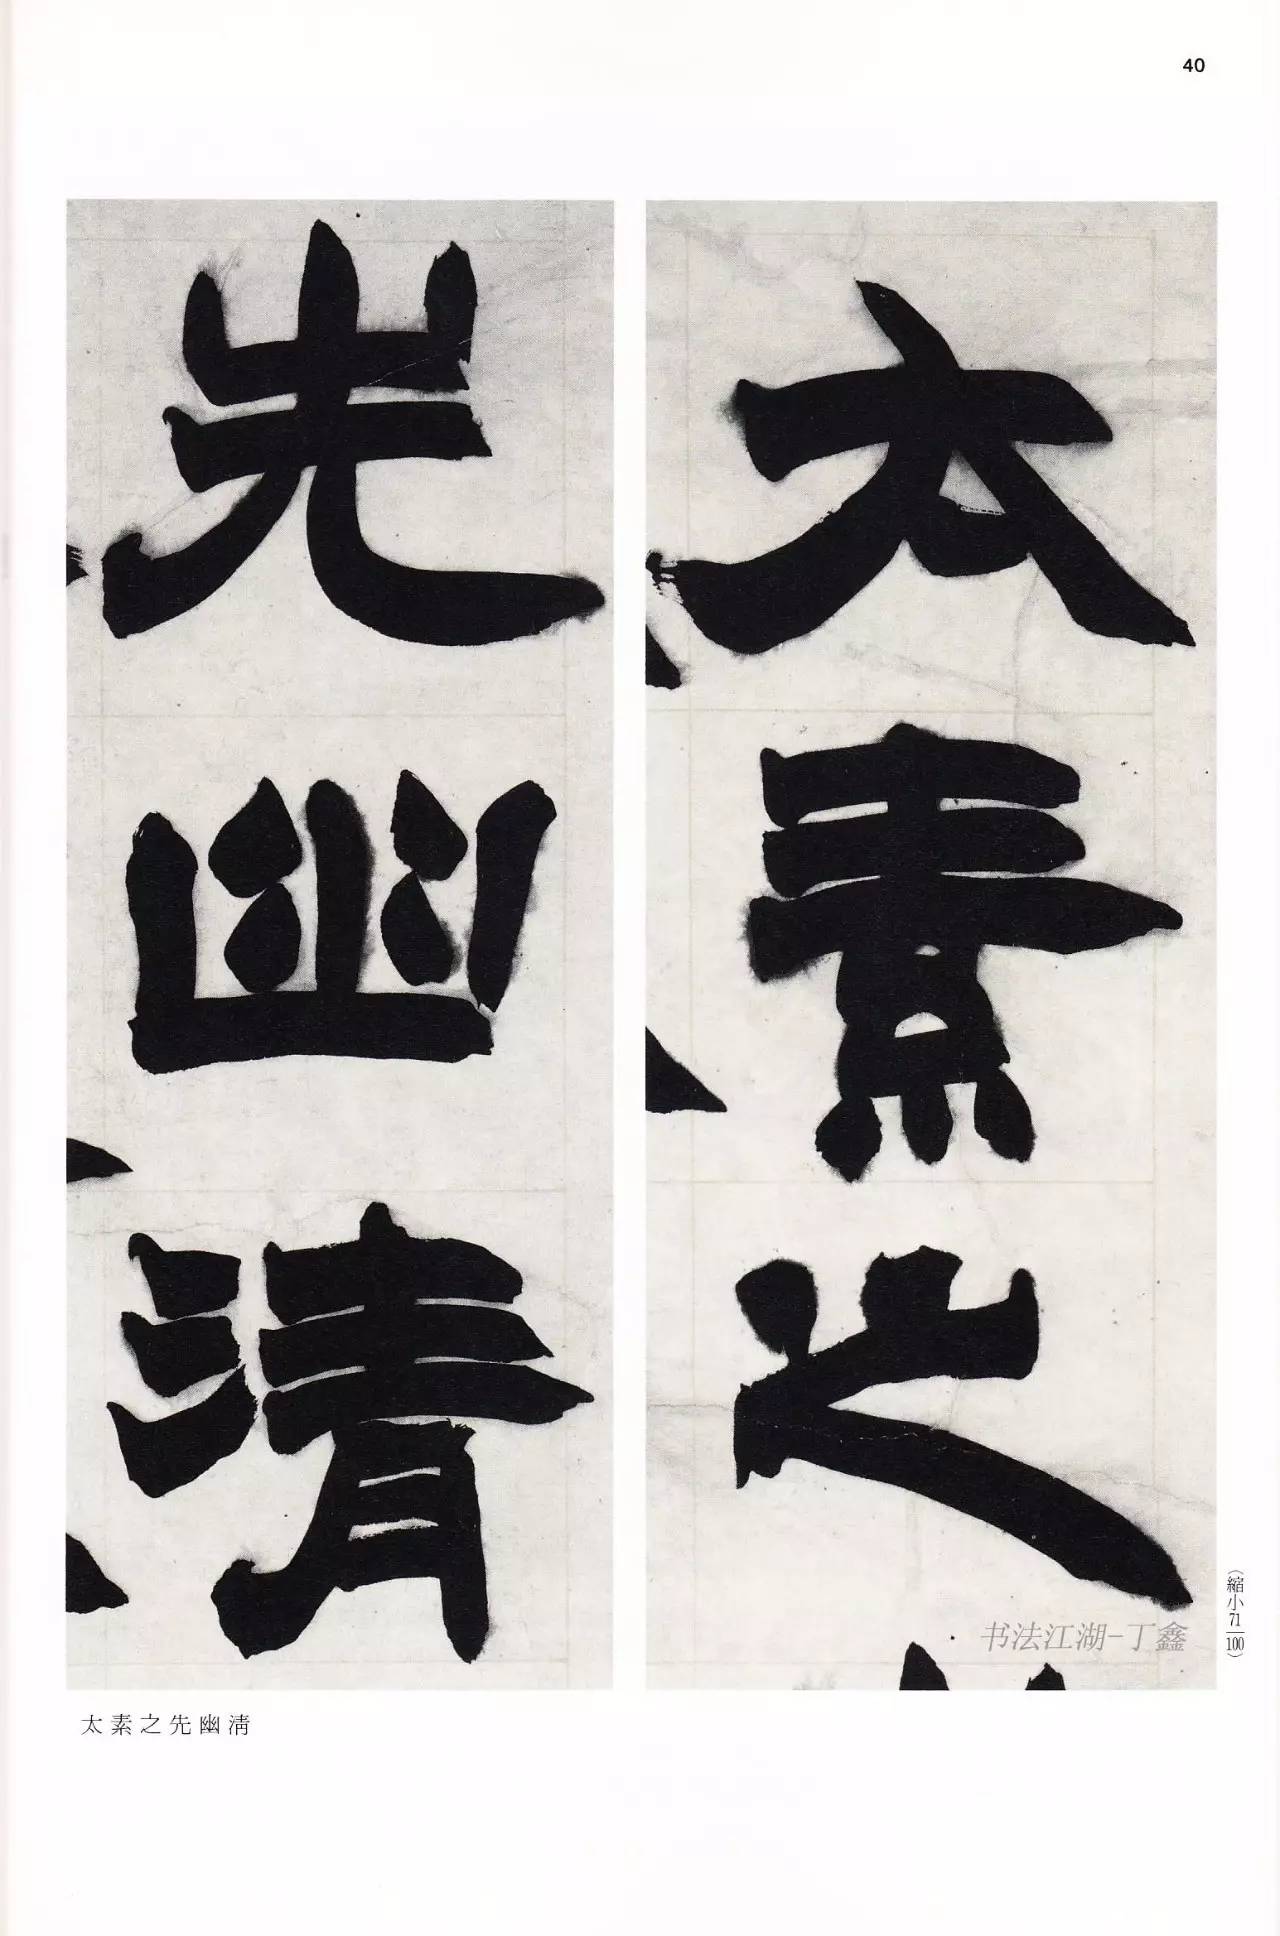 40
太素之
先幽清
(縮小71/100)
书法江湖-丁鑫
太素之先幽清